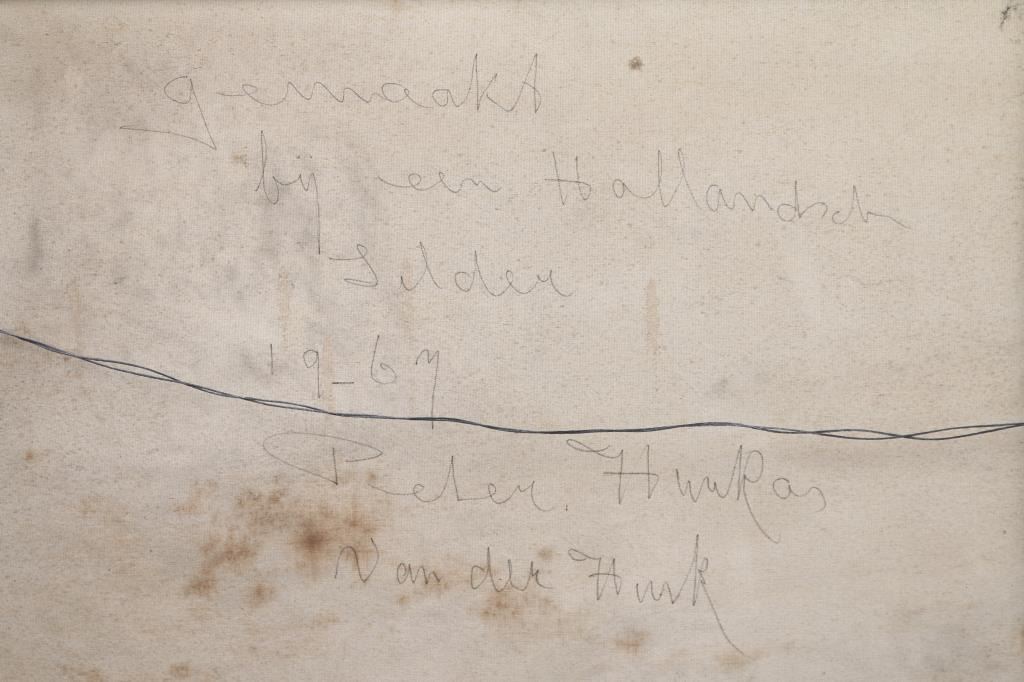 gemaakt
bij een Hollandsch
Silder
19-67
Pieter. Hurkas
Van der Hurk